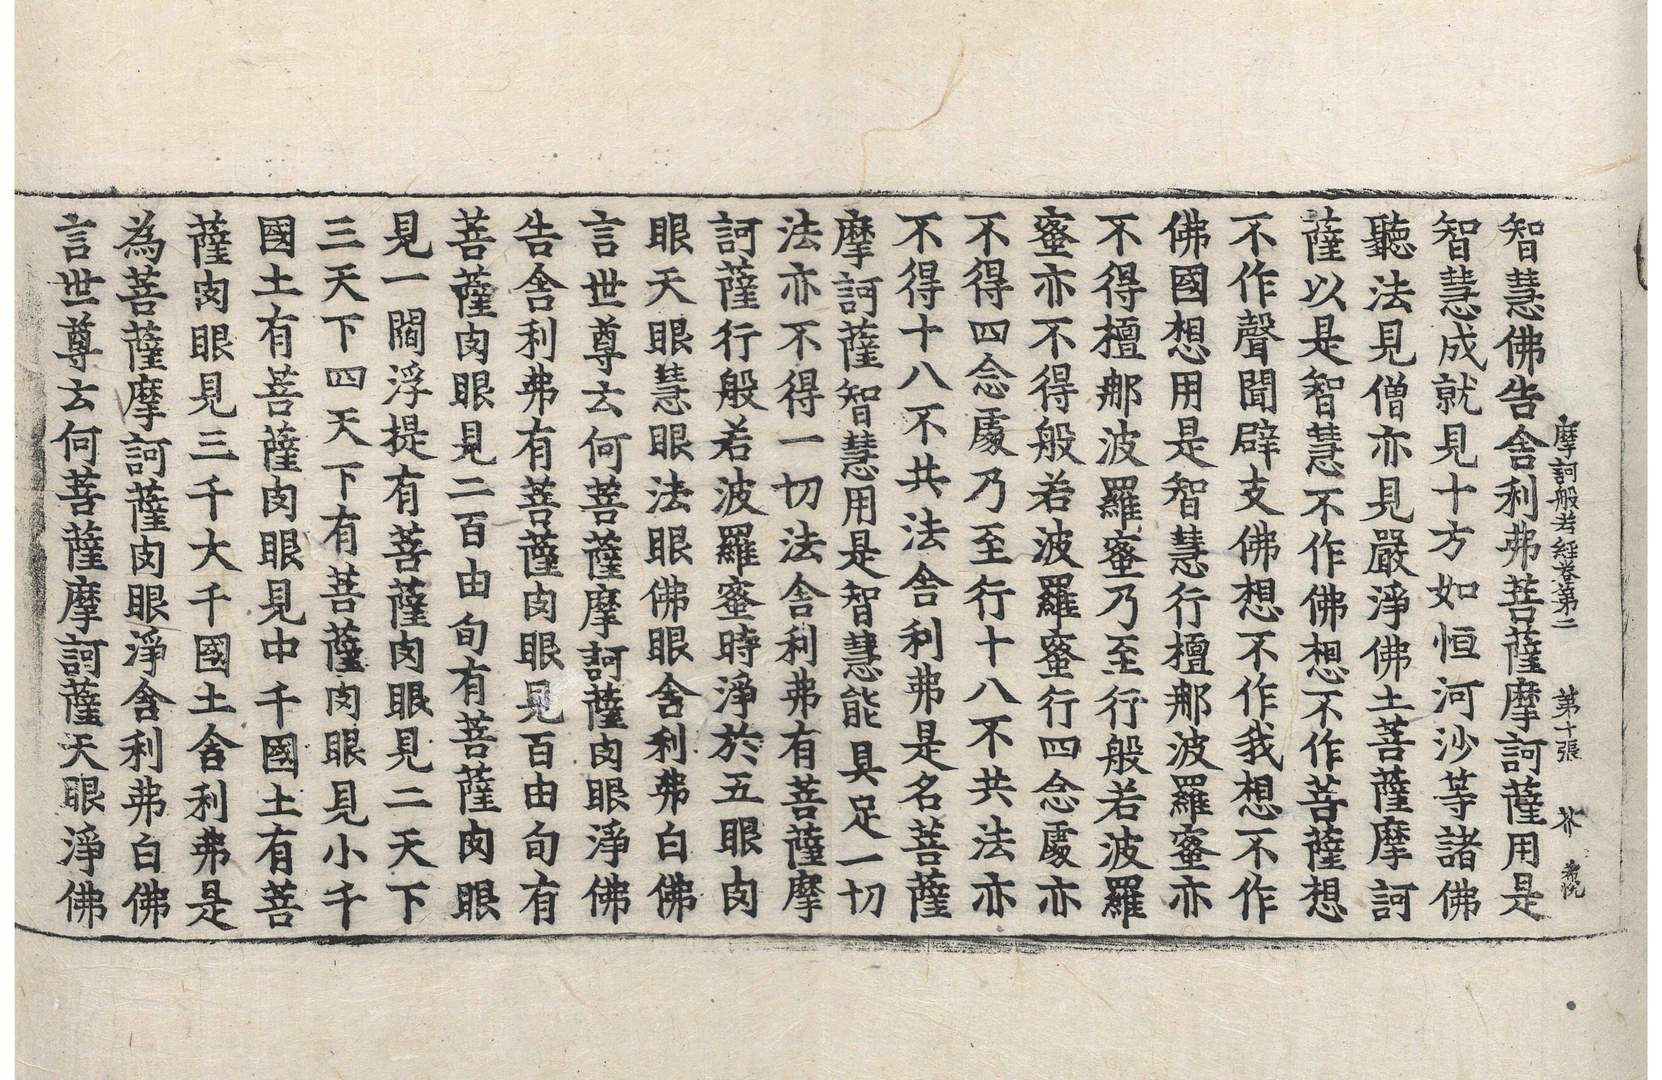 摩訶般若經卷第二 第十張 芥 希悅
智慧佛告舍利弗菩薩摩訶薩用是
智慧成就見十方如恒河沙等諸佛
聽法見僧亦見嚴淨佛土菩薩摩訶
薩以是智慧不作佛想不作菩薩想
不作聲聞辟支佛想不作我想不作
佛國想用是智慧行檀那波羅蜜亦
不得檀那波羅蜜乃至行般若波羅
蜜亦不得般若波羅蜜行四念處亦
不得四念處乃至行十八不共法亦
不得十八不共法舍利弗是名菩薩
摩訶薩智慧用是智慧能具足一切
法亦不得一切法舍利弗有菩薩摩
訶薩行般若波羅蜜時淨於五眼肉
眼天眼慧眼法眼佛眼舍利弗白佛
言世尊云何菩薩摩訶薩肉眼淨佛
告舍利弗有菩薩肉眼見百由旬有
菩薩肉眼見二百由旬有菩薩肉眼
見一閻浮提有菩薩肉眼見二天下
三天下四天下有菩薩肉眼見小千
國土有菩薩肉眼見中千國土有菩
薩肉眼見三千大千國土舍利弗是
為菩薩摩訶薩肉眼淨舍利弗白佛
言世尊云何菩薩摩訶薩天眼淨佛